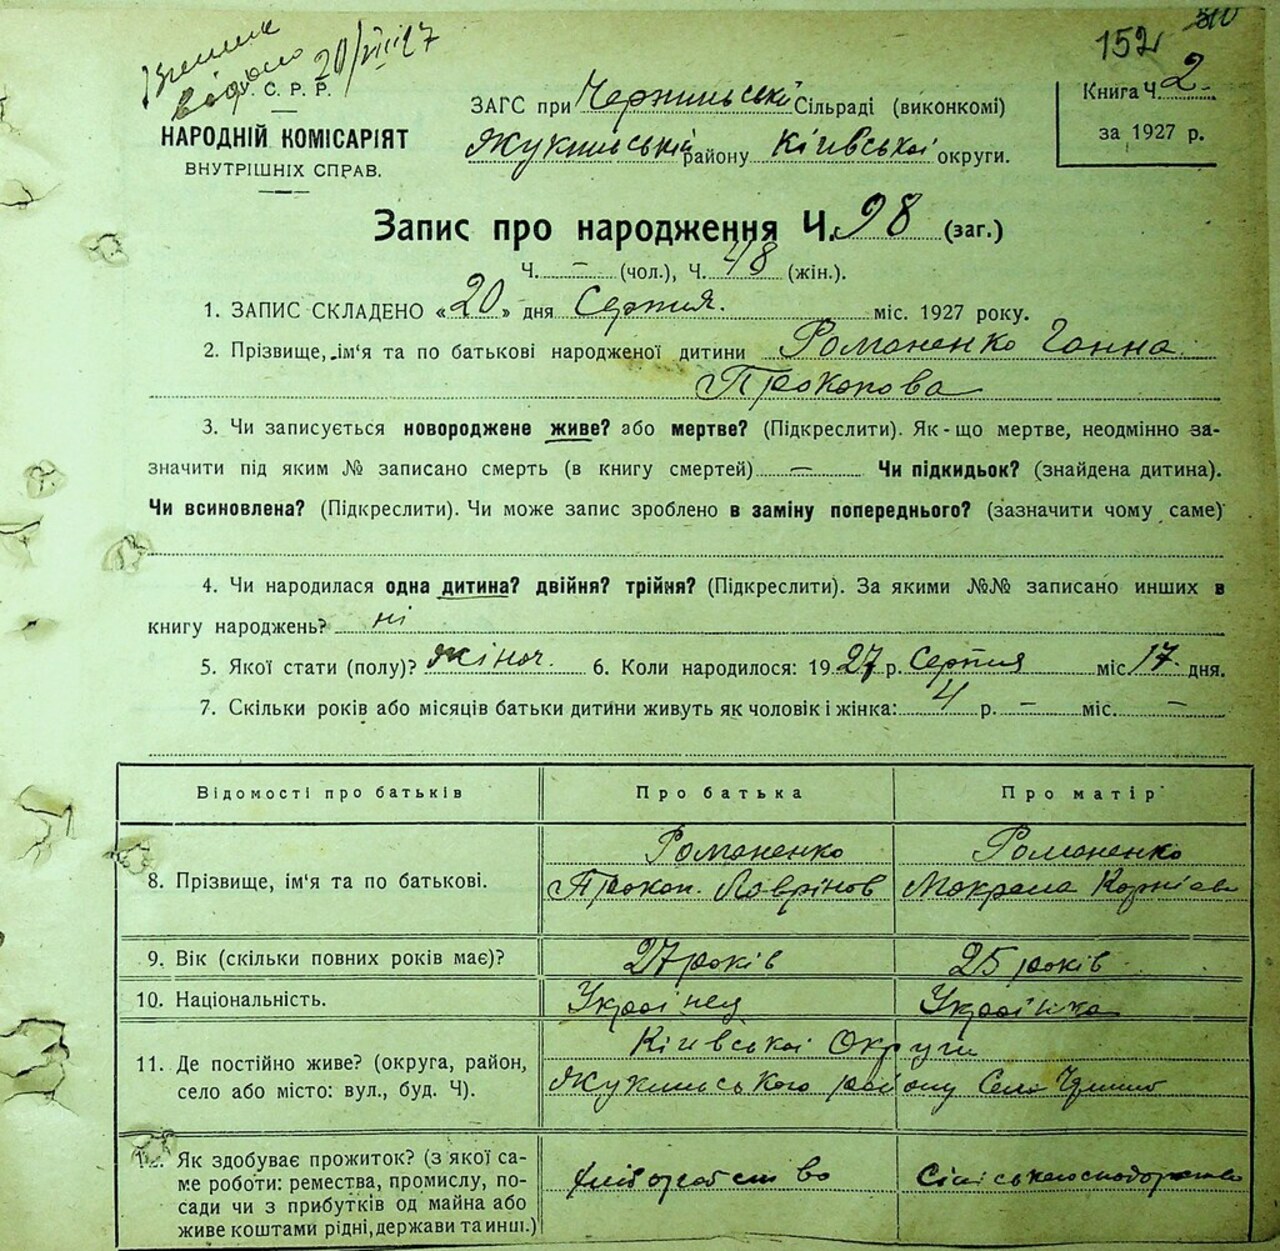 Витяг
видано 20/VIII 27
152
У. С. Р. Р.
НАРОДНІЙ КОМІСАРІЯТ
ВНУТРІШНІХ СПРАВ.
ЗАГС при Чернинській Сільраді (виконкомі)
Жукинській району Київської округи.
Книга Ч. 2
за 1927 р.
Запис про народження Ч. 98 (заг.)
Ч. — (чол.), Ч. 48 (жін.).
1. ЗАПИС СКЛАДЕНО «20» дня Серпня. міс. 1927 року.
2. Прізвище, ім'я та по батькові народженої дитини Романенко Ганна
Прокопова
3. Чи записується новороджене живе? або мертве? (Підкреслити). Як-що мертве, неодмінно за-
значити під яким № записано смерть (в книгу смертей) — Чи підкидьок? (знайдена дитина).
Чи всиновлена? (Підкреслити). Чи може запис зроблено в заміну попереднього? (зазначити чому саме)
4. Чи народилася одна дитина? двійня? трійня? (Підкреслити). За якими №№ записано инших в
книгу народжень? ні
5. Якої стати (полу)? жіноч. 6. Коли народилося: 1927 р. Серпня міс. 17 дня.
7. Скільки років або місяців батьки дитини живуть як чоловік і жінка: 4 р. — міс. —
Відомості про батьків Про батька Про матір
8. Прізвище, ім'я та по батькові.
Романенко
Прокоп. Лаврінов
Романенко
Макрена Корнієва
9. Вік (скільки повних років має)? 27 років 25 років
10. Національність. Українец Українка
11. Де постійно живе? (округа, район,
село або місто: вул., буд. Ч).
Київської Округи
Жукинського району Село
12. Як здобуває прожиток? (з якої са-
ме роботи: ремества, промислу, по-
сади чи з прибутків од майна або
живе коштами рідні, держави та инш.)
хліборобство